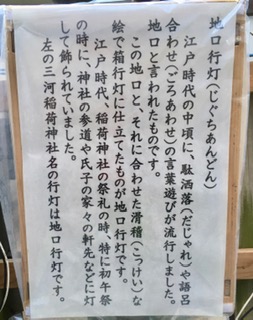 地口行灯(じぐちあんどん)
江戸時代の中頃に、駄洒落(だじゃれ)や語呂
合わせ(ごろあわせ)の言葉遊びが流行しました。
地口と言われたものです。
この地口と、それに合わせた滑稽(こっけい)な
絵で箱行灯に仕立てたものが地口行灯です。
江戸時代、稲荷神社の祭礼の時、特に初午祭
の時に、神社の参道や氏子の家々の軒先などに灯
して飾られていました。
左の三河稲荷神社名の行灯は地口行灯です。